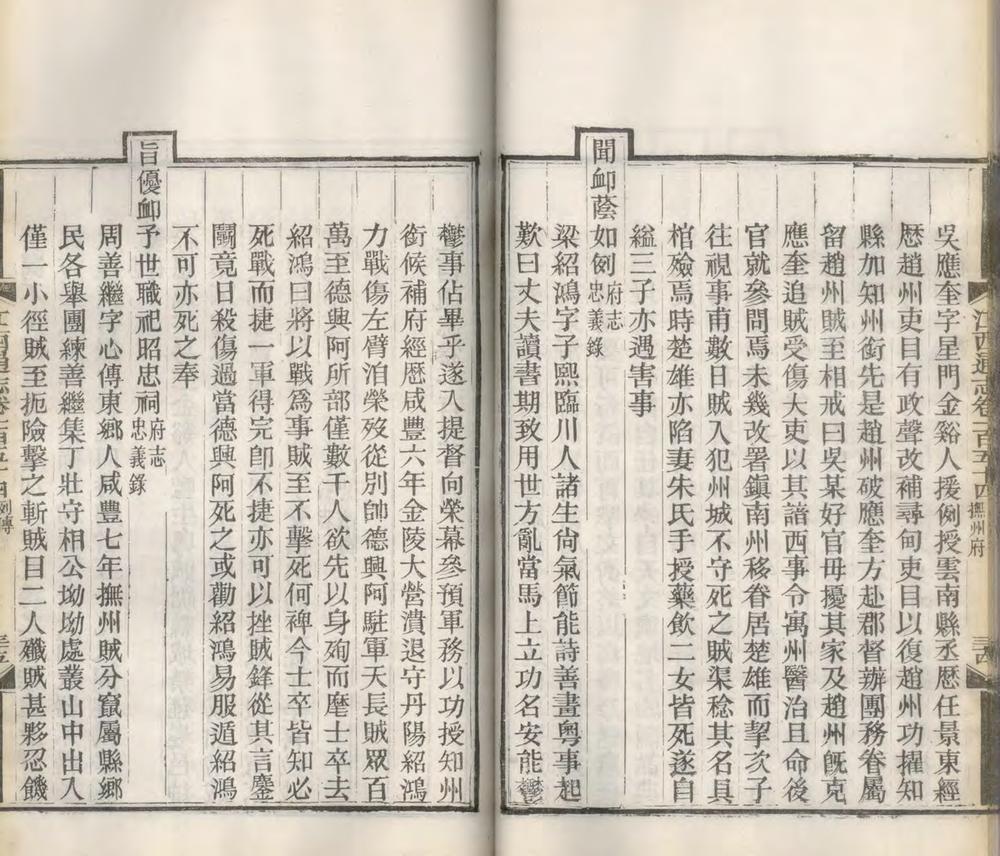 江西通志卷一百五十四 撫州府 三四
吳應奎字星門金谿人援例授雲南縣丞歷任景東經
歷趙州吏目有政聲改補尋甸吏目以復趙州功擢知
縣加知州銜先是趙州破應奎方赴郡督辦團務眷屬
留趙州賊至相戒曰吳某好官毋擾其家及趙州旣克
應奎追賊受傷大吏以其諳西事令寓州醫治且命後
官就參問焉未幾改署鎭南州移眷居楚雄而挈次子
往視事甫數日賊入犯州城不守死之賊渠稔其名具
棺殮焉時楚雄亦陷妻朱氏手授藥飲二女皆死遂自
縊三子亦遇害事
聞卹蔭如例府志忠義錄
梁紹鴻字子熙臨川人諸生尙氣節能詩善畫粵事起
歎曰丈夫讀書期致用世方亂當馬上立功名安能鬱
鬱事佔畢乎遂入提督向榮幕參預軍務以功授知州
銜候補府經歷咸豐六年金陵大營潰退守丹陽紹鴻
力戰傷左臂洎榮歿從別帥德興阿駐軍天長賊眾百
萬至德興阿所部僅數千人欲先以身殉而麾士卒去
紹鴻曰將以戰爲事賊至不擊死何裨今士卒皆知必
死戰而捷一軍得完卽不捷亦可以挫賊鋒從其言鏖
鬬竟日殺傷過當德興阿死之或勸紹鴻易服遁紹鴻
不可亦死之奉
旨優卹予世職祀昭忠祠府志忠義錄
周善繼字心傳東鄉人咸豐七年撫州賊分竄屬縣鄉
民各舉團練善繼集丁壯守相公坳坳處叢山中出入
僅一小徑賊至扼險擊之斬賊目二人殲賊甚夥忍饑
江西通志卷一百五十四 列傳 三五